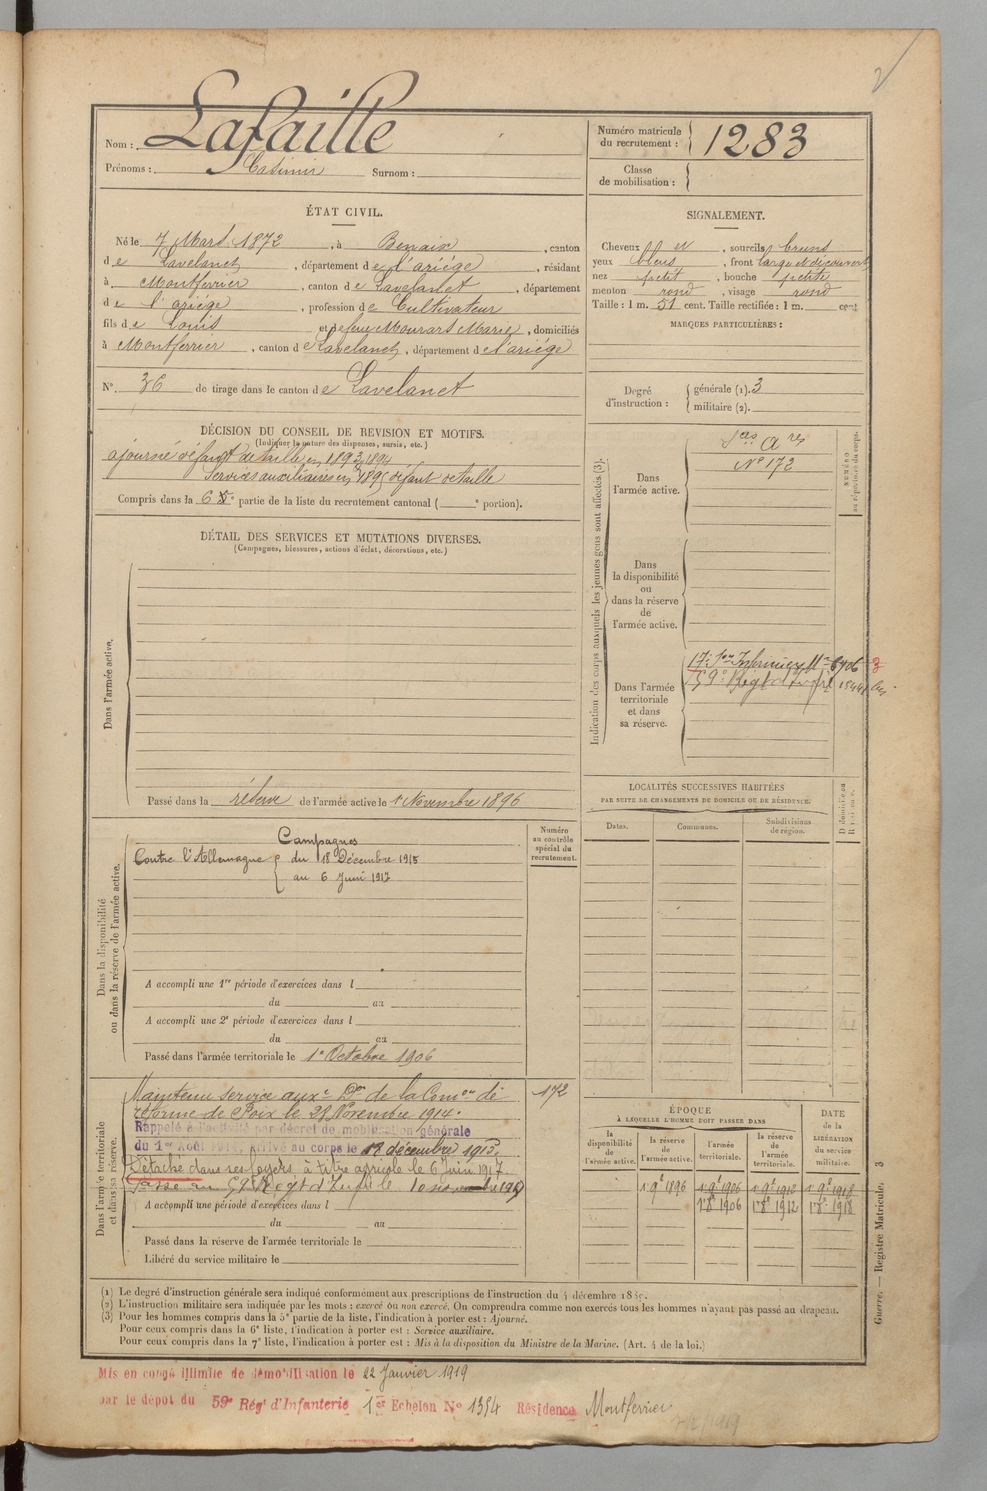 Nom : Lafaille
Prénoms : Casimir Surnom :
Numéro matricule du recrutement : 1283
Classe de mobilisation :
ÉTAT CIVIL.
Né le 7 Mars 1872, à Benaix, canton
de Lavelanet, département de l'ariége, résidant
à Montferrier, canton de Lavelanet, département
de l'ariége, profession de Cultivateur
fils de Louis et de feu Mourars Marie, domiciliés
à Montferrier, canton de Lavelanet, département de l'ariége
N° 36 de tirage dans le canton de Lavelanet
SIGNALEMENT.
Cheveux, sourcils bruns
yeux bleus, front large et découvert
nez petit, bouche petite
menton rond, visage rond
Taille : 1 m. 51 cent. Taille rectifiée : 1 m. cent
MARQUES PARTICULIÈRES :
Degré d'instruction : générale (1). 3
militaire (2).
DÉCISION DU CONSEIL DE REVISION ET MOTIFS.
(Indiquer la nature des dispenses, sursis, etc.)
ajourné défaut de taille en 1893, 1894
Services auxiliaires en 1895 défaut de taille
Compris dans la 6 e partie de la liste du recrutement cantonal ( e portion).
DÉTAIL DES SERVICES ET MUTATIONS DIVERSES.
(Campagnes, blessures, actions d'éclat, décorations, etc.)
Dans l'armée active.
Passé dans la réserve de l'armée active le 1er Novembre 1896
Indication des corps auxquels les jeunes gens sont affectés (3).
NUMÉRO
au répertoire du corps.
Dans l'armée active.
N° 172
Dans
la disponibilité
ou
dans la réserve
de
l'armée active.
Dans l'armée
territoriale
et dans
sa réserve.
17e Son Infirmiers
59e Régt d'infie
LOCALITÉS SUCCESSIVES HABITÉES
PAR SUITE DE CHANGEMENTS DE DOMICILE OU DE RÉSIDENCE.
Dates. Communes. Subdivisions de région.
Dans la disponibilité
ou dans la réserve de l'armée active.
Numéro au contrôle spécial du recrutement.
Campagnes
Contre l'Allemagne du 18 Décembre 1915
au 6 Juin 1917
A accompli une 1re période d'exercices dans l
du au
A accompli une 2e période d'exercices dans l
du au
Passé dans l'armée territoriale le 1er Octobre 1906
Dans l'armée territoriale
et dans sa réserve.
Maintenu service auxre Don de la Comon de 172
réforme de Foix le 28 Novembre 1914.
Rappelé à l'activité par décret de mobilisation générale
du 1er Août 1914. Arrivé au corps le 18 décembre 1915.
Détaché dans ses foyers à titre agricole le 6 Juin 1917.
Passé au 59e Régt d'Infie le 10 novembre 1917
A accompli une période d'exercices dans l
du au
Passé dans la réserve de l'armée territoriale le
Libéré du service militaire le
ÉPOQUE
À LAQUELLE L'HOMME DOIT PASSER DANS
la disponibilité de l'armée active.
la réserve de l'armée active.
l'armée territoriale.
la réserve de l'armée territoriale.
DATE de la LIBÉRATION du service militaire.
1 9e 1896 1 9e 1906 1 9e 1912 1 9e 1918
1er 8e 1906 1er 8e 1912 1er 8e 1918
(1) Le degré d'instruction générale sera indiqué conformément aux prescriptions de l'instruction du 4 décembre 1889.
(2) L'instruction militaire sera indiquée par les mots : exercé ou non exercé. On comprendra comme non exercés tous les hommes n'ayant pas passé au drapeau.
(3) Pour les hommes compris dans la 5e partie de la liste, l'indication à porter est : Ajourné.
Pour ceux compris dans la 6e liste, l'indication à porter est : Service auxiliaire.
Pour ceux compris dans la 7e liste, l'indication à porter est : Mis à la disposition du Ministre de la Marine. (Art. 4 de la loi.)
Guerre. — Registre Matricule. 3
Mis en congé illimité de démobilisation le 22 Janvier 1919
par le dépôt du 59e Régt d'Infanterie 1er Echelon N° 1354 Résidence Montferrier